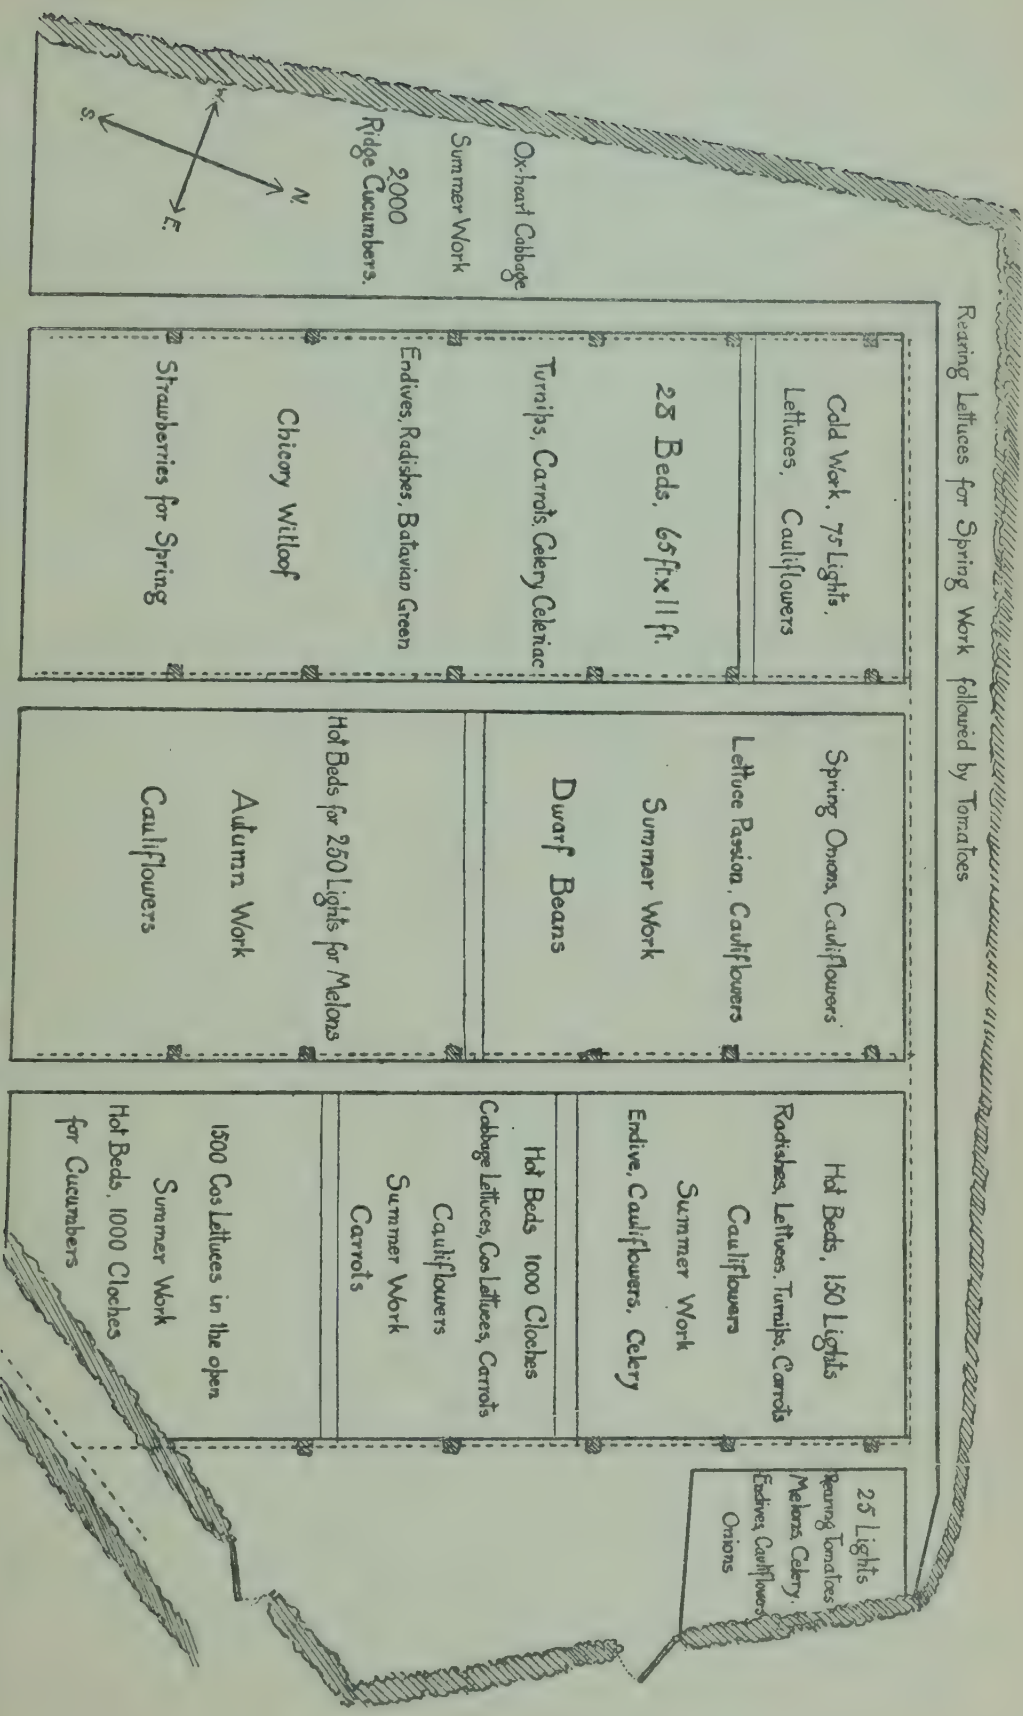 Rearing Lettuces for Spring Work followed by Tomatoes
Ox-heart Cabbage
Summer Work
2000
Ridge Cucumbers.
N.
S.
E.
W.
Cold Work. 75 Lights.
Lettuces, Cauliflowers
28 Beds, 65ft.x11ft.
Turnips, Carrots, Celery Celeriac
Endives, Radishes, Batavian Green
Chicory Witloof
Strawberries for Spring
Spring Onions, Cauliflowers
Lettuce Passion, Cauliflowers
Summer Work
Dwarf Beans
Hot Beds for 250 Lights for Melons
Autumn Work
Cauliflowers
Hot Beds, 150 Lights
Radishes, Lettuces, Turnips, Carrots
Cauliflowers
Summer Work
Endive, Cauliflowers, Celery
Hot Beds 1000 Cloches
Cabbage Lettuces, Cos Lettuces, Carrots
Cauliflowers
Summer Work
Carrots
1500 Cos Lettuces in the open
Summer Work
Hot Beds, 1000 Cloches
for Cucumbers
25 Lights
Rearing Tomatoes
Melons, Celery.
Endives, Cauliflowers
Onions